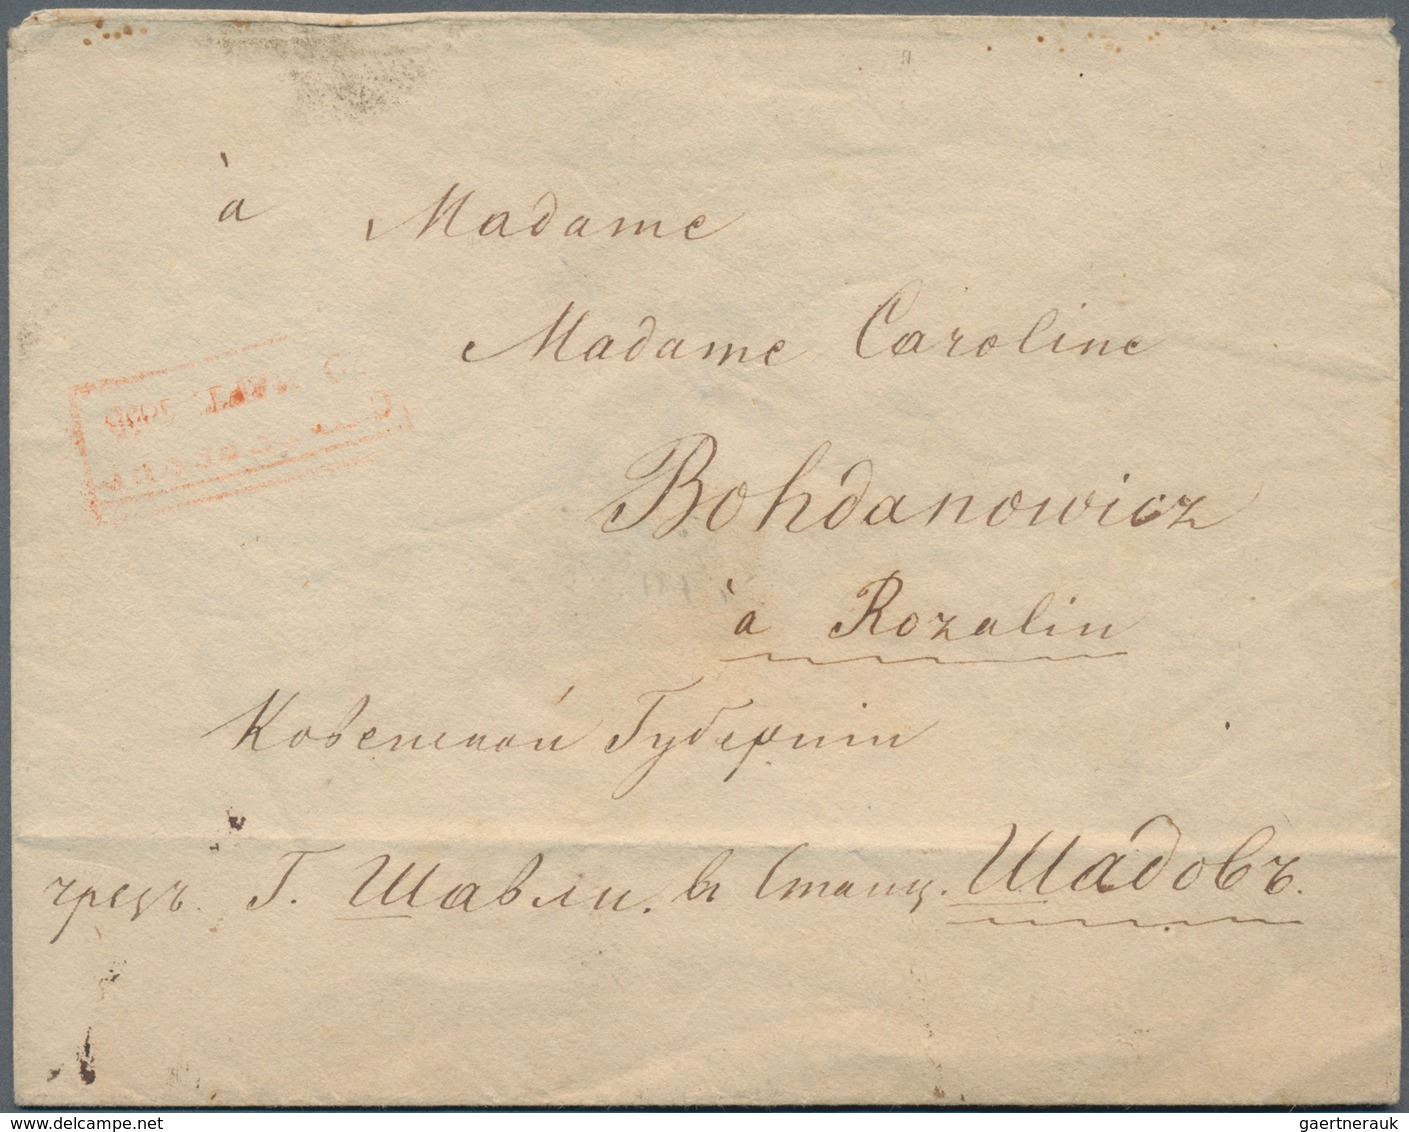 à Madame
Madame Caroline
Bohdanowicz
à Rozalin
Ковенской Губерніи
чрезъ Г. Шавли. въ Станц. Шадовъ.
gaertnerauk